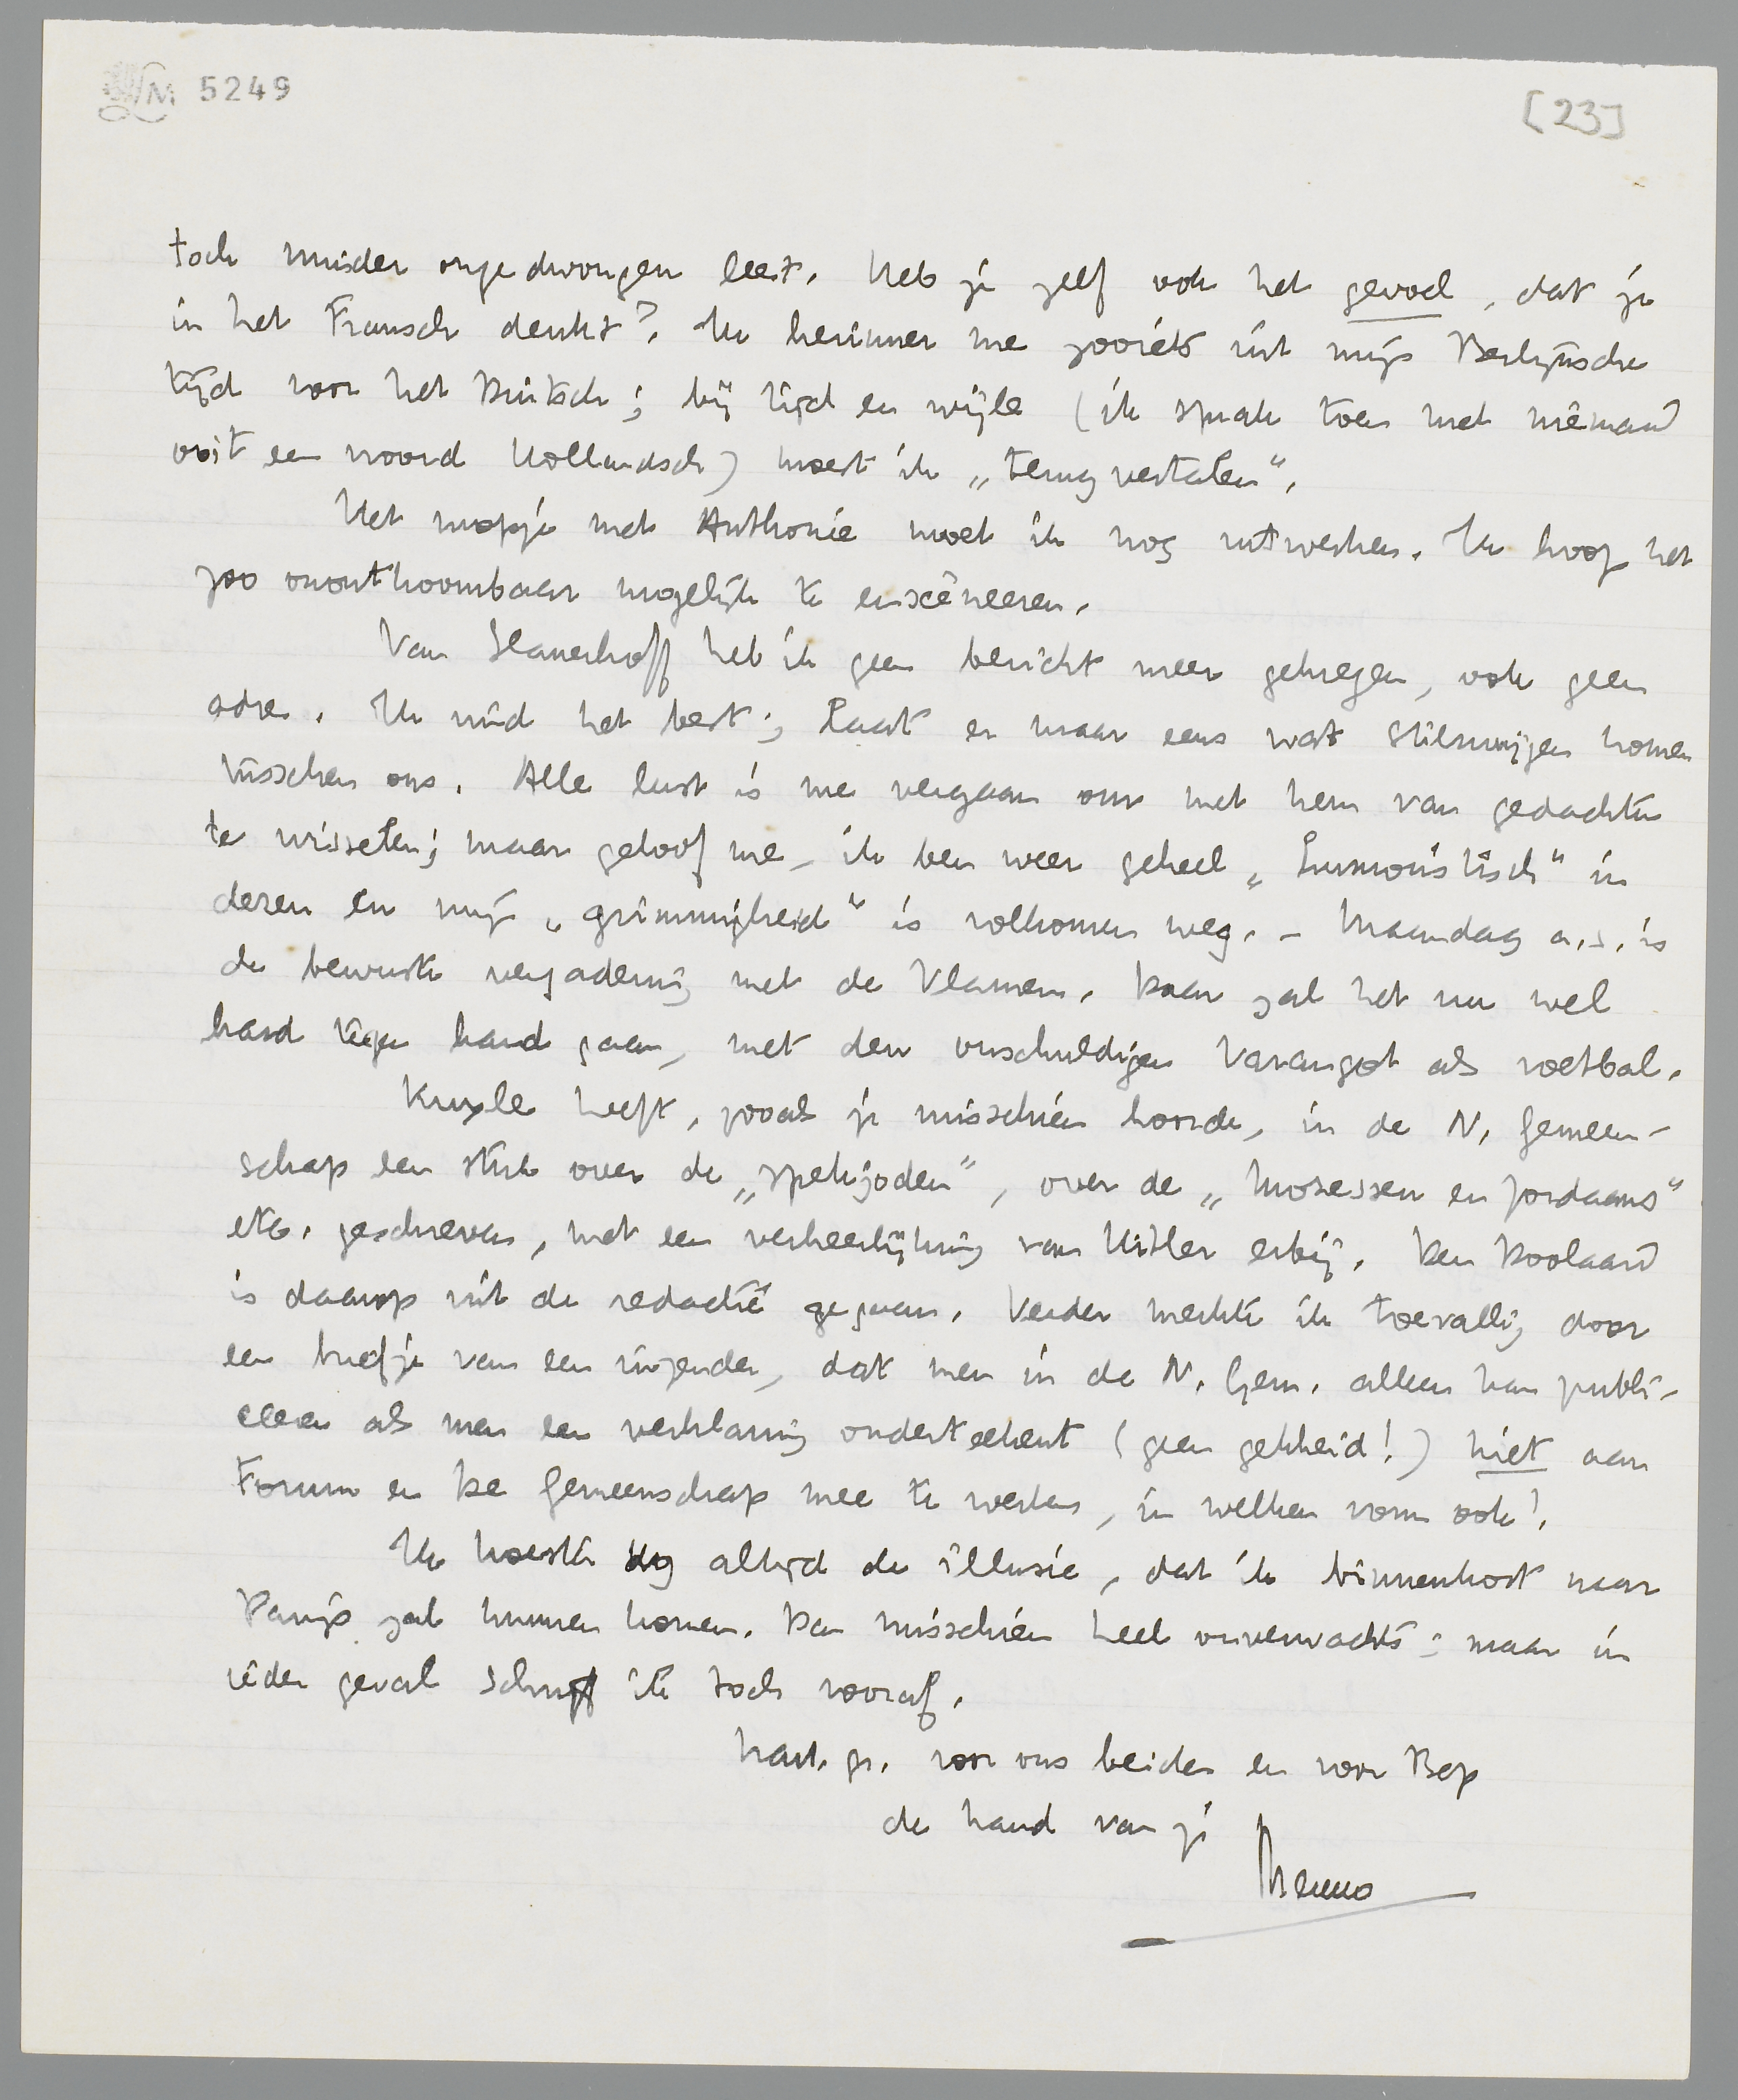 LM 5249
[23]
toch minder ongedwongen leest. Heb je zelf ook het gevoel, dat je
in het Fransch denkt? Ik herinner me zooiets uit mijn Berlijnsche
tijd voor het Duitsch; bij tijd en wijle (ik sprak toen met niemand
ooit een woord Hollandsch) moest ik „terugvertalen".
Het mopje met Anthonie moet ik nog uitwerken. Ik hoop het
zoo onontkoombaar mogelijk te ensceneeren.
Van Slauerhoff heb ik geen bericht meer gekregen, ook geen
adres. Ik vind het best; Laat er maar eens wat stilzwijgen komen
tusschen ons. Alle lust is me vergaan om met hem van gedachten
te wisselen; maar geloof me, ik ben weer geheel „humoristisch" in
dezen en mijn „grimmigheid" is volkomen weg. – Maandag a.s. is
de bewuste vergadering met de Vlamen. Daar zal het nu wel
hard tegen hard gaan, met den onschuldigen Varangot als voetbal.
Kuyle heeft, zooals je misschien hoorde, in de N. Gemeen-
schap een stuk over de „spekjoden", over de „Mosessen en Jordaans"
etc. geschreven, met een verheerlijking van Hitler erbij. Den Doolaard
is daarop uit de redactie gegaan. Verder merkte ik toevallig door
een briefje van een inzender, dat men in de N. Gem. alleen kan publi-
ceeren als men een verklaring onderteekent (geen gekheid!) niet aan
Forum en De Gemeenschap mee te werken, in welken vorm ook!
Ik koester nog altijd de illusie, dat ik binnenkort naar
Parijs zal kunnen komen. Dan misschien heel onverwachts; maar in
ieder geval schrijf ik toch vooraf.
hart. gr. voor ons beiden en voor Bep
de hand van je
Menno